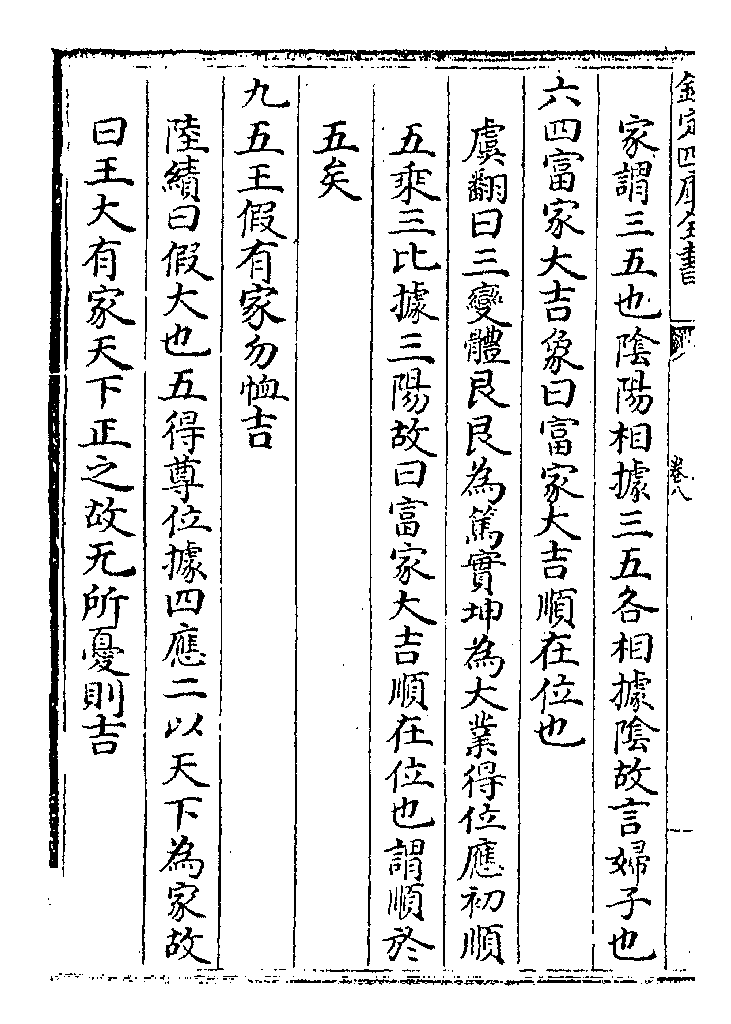 欽定四庫全書
卷八
家謂三五也陰陽相據三五各相據陰故言婦子也
六四富家大吉象曰富家大吉順在位也
虞翻曰三變體艮艮為篤實坤為大業得位應初順
五乘三比據三陽故曰富家大吉順在位也謂順於
五矣
九五王假有家勿恤吉
陸績曰假大也五得尊位據四應二以天下為家故
曰王大有家天下正之故无所憂則吉